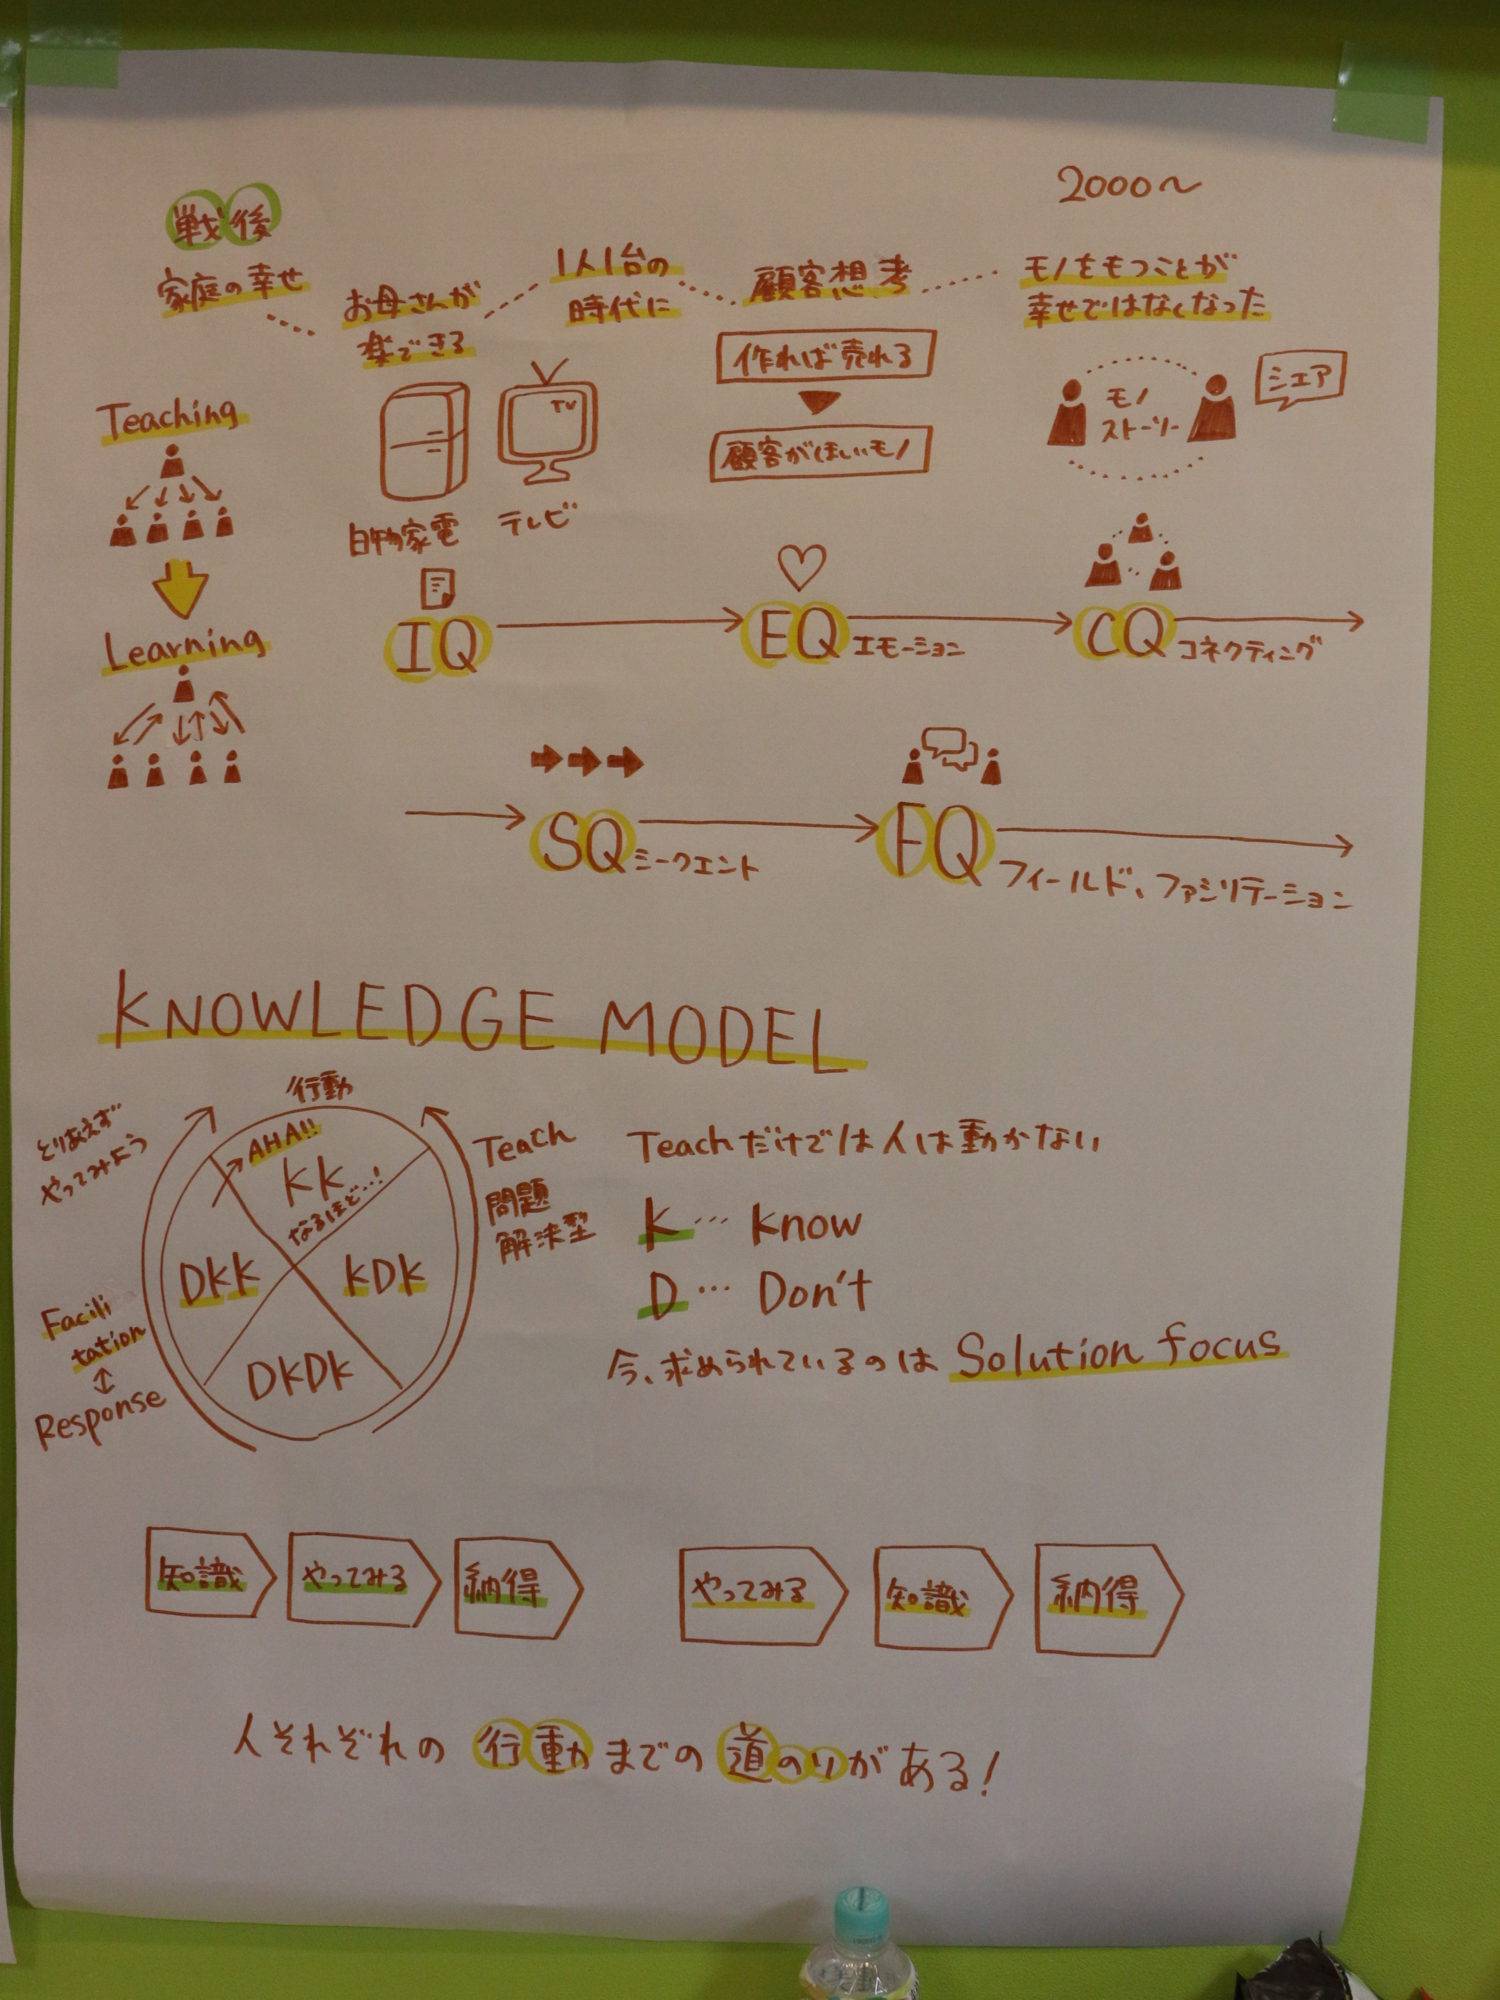 2000〜
戦後
家庭の幸せ
お母さんが
楽できる
1人1台の
時代に
顧客想考
モノをもつことが
幸せではなくなった
作れば売れる
顧客がほしいモノ
モノ
ストーリー
シェア
TV
白物家電
テレビ
Teaching
Learning
IQ
EQ エモーション
CQ コネクティング
SQ シークエント
FQ フィールド、ファシリテーション
KNOWLEDGE MODEL
行動
とりあえず
やってみよう
AHA!!
KK
なるほど…!
DKK
KDK
DKDK
Teach
問題
解決型
Facili
tation
↕
Response
Teachだけでは人は動かない
K … Know
D … Don't
今、求められているのは Solution focus
知識
やってみる
納得
やってみる
知識
納得
人それぞれの行動までの道のりがある!